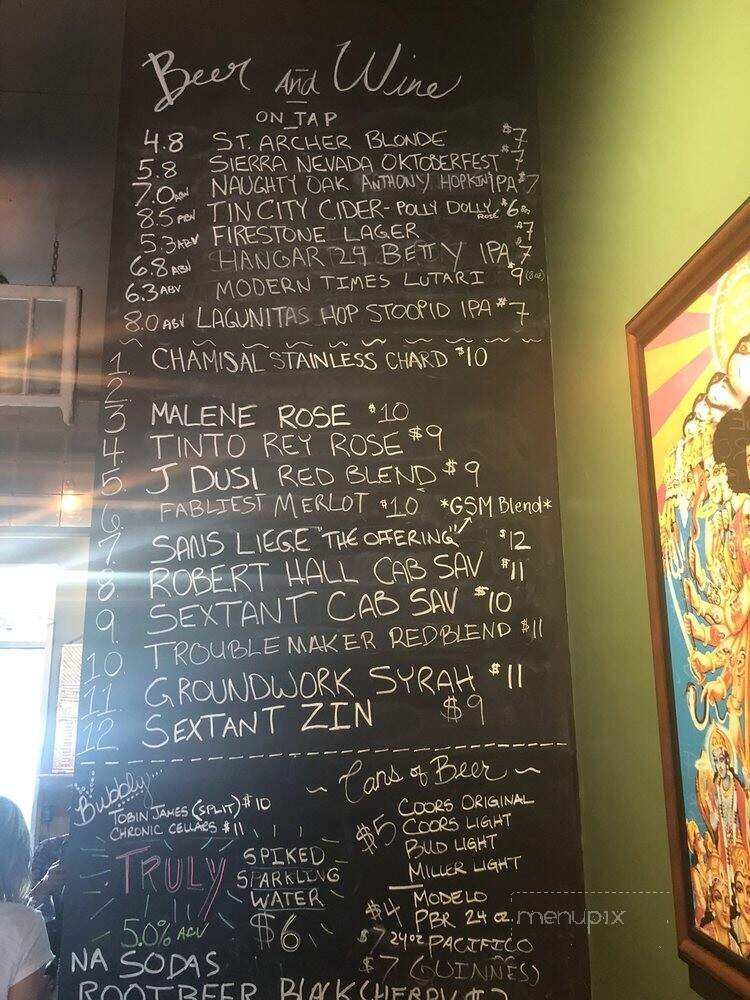 Beer And Wine
ON TAP
4.8 ST. ARCHER BLONDE $7
5.8 SIERRA NEVADA OKTOBERFEST $7
7.0 ABV NAUGHTY OAK ANTHONY HOPKIN IPA $7
8.5 ABV TIN CITY CIDER - POLLY DOLLY ROSE $6 8oz
5.3 ABV FIRESTONE LAGER $7
6.8 ABV HANGAR 24 BETTY IPA $7
6.3 ABV MODERN TIMES LUTARI $9 (8oz)
8.0 ABV LAGUNITAS HOP STOOPID IPA $7
1. CHAMISAL STAINLESS CHARD $10
2.
3. MALENE ROSE $10
4. TINTO REY ROSE $9
5. J DUSI RED BLEND $9
6. FABLIEST MERLOT $10 *GSM Blend*
7. SANS LIEGE "THE OFFERING" $12
8. ROBERT HALL CAB SAV $11
9. SEXTANT CAB SAV $10
10. TROUBLEMAKER RED BLEND $11
11. GROUNDWORK SYRAH $11
12. SEXTANT ZIN $9
Bubbly
TOBIN JAMES (SPLIT) $10
CHRONIC CELLARS $11
TRULY SPIKED
SPARKLING
WATER
5.0% ACV $6
NA SODAS
ROOTBEER BLACK CHERRY $2
~ Cans of Beer ~
COORS ORIGINAL
$5 COORS LIGHT
BUD LIGHT
MILLER LIGHT
MODELO
$4 PBR 24 oz.
$7 24oz PACIFICO
$7 (GUINNES)
menupix